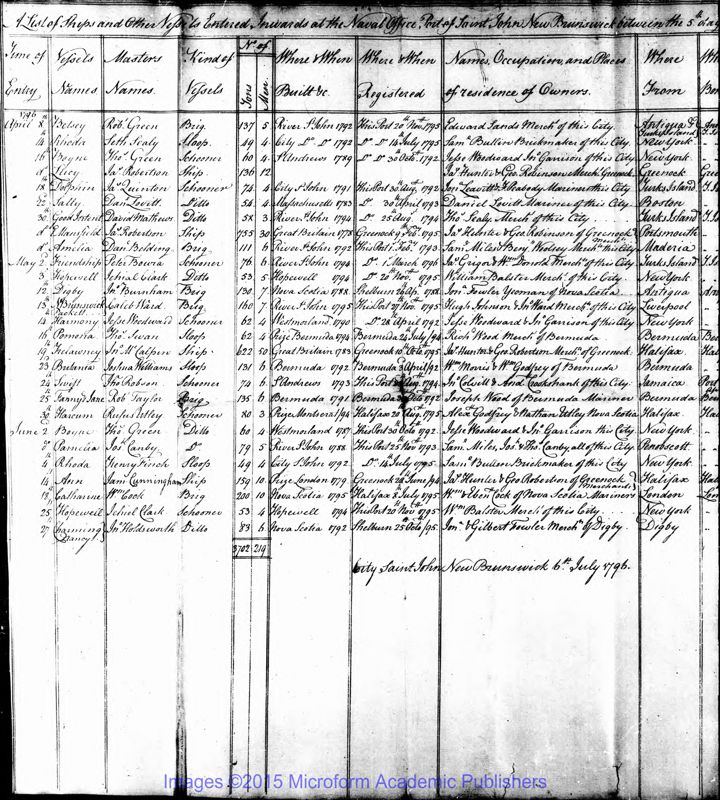 A List of Ships and Other Vessels Entered Inwards at the Naval Office, Port of Saint John New Brunswick between the 5th day
Time of Entry Vessels Names. Masters Names. Kind of Vessels No. of Tons Men Where & When Built &c. Where & When Registered Names, Occupation, and Places of residence of Owners. Where From
1796
April 8 Betsey Robt Green Brig 137 5 River St John 1792 This Port 20th Novr 1795 Edward Sands Mercht of this City. Antigua & Turks Island
14 Rhoder Seth Sealy Sloop 49 4 City Do Do 1792 Do Do 14 July 1795 Saml Bullen Brickmaker of this City New York
16 Boyne Thos Green Schooner 60 4 St Andrews 1789 Do Do 30 Octr 1792 Jesse Woodward Jno Garrison of this City New York
d Lucy Jas Robertson Ship 136 12 Jas Hunter & Geo Robinson Mercht Greenock Greenock
18 Dolphin Jas Quinton Schooner 74 4 City St John 1791 This Port 30 Augt 1792 Jon Leavitt & F Peabody Mariner this City Turks Island
22 Sally Danl Lovitt Ditto 54 4 Massachusetts 1783 Do 30 April 1793 Daniel Lovitt Mariner of this City Boston
30 Good Intent David Mathews Ditto 58 3 River St John 1794 Do 25 Augt 1794 Thos Sealy Merch of this City Turks Island
d E. Mansfield Jas Robertson Ship 735 30 Great Britain 1778 Greenock 9 Feby 1795 Jas Hunter & Geo Robinson of Greenock Portsmouth
d Amelia Dan Belding Brig 111 6 River St John 1792 This Port 1 Feby 1793 Saml Miles & Benj Wolsey Mercht Mrs this City Maderia
May 2 Friendship Peter Bowra Schooner 76 6 River St John 1794 Do 1 March 1796 Jas Gregor & Wm Donold Mercht of this City Turks Island
3 Hopewell Schiel Clark Ditto 53 5 Hopewell 1794 Do 20th Novr 1795 William Balster Mercht of this City New York
12 Digby Jno Burnham Brig 130 7 Nova Scotia 1788 Shelburn 24 Apl 1788 Jonn Fowler Yeoman of Nova Scotia Antigua
13 Brunswick Packett Caleb Ward Brig 160 7 River St John 1795 This Port Novr 1795 Hugh Johnson & Jno Ward Mercht of this City Liverpool
14 Harmony Jesse Woodward Schooner 62 4 Westmorland 1790 Do 28 April 1792 Jesse Woodward & Jno Garrison of this City New York
16 Pomona Thos Swan Sloop 62 4 Prize Bermuda 1794 Bermuda 24 July /94 Rich Wood Merch of Bermuda Bermuda
19 Trelawney Jno McCalpen Ship 622 50 Great Britain 1783 Greenock 10 Octo 1795 Jas Hunter & Geo Robertson Merch of Greenock Halifax
23 Bretania Joshua Williams Sloop 131 6 Bermuda 1792 Bermuda 3 April /92 Wm Morris & Wm Godfrey of Bermuda Bermuda
24 Swift Thos Robson Schooner 74 6 St Andrews 1793 This Port 1794 Jno Colvill & And Cookshank of this City Jamaica
25 Fanny Jane Rob Taylor Brig 135 6 Bermuda 1791 Bermuda Decr 1792 Joseph Ward of Bermuda Mariner Bermuda
30 Harcum Rufus Utley Schooner 80 3 Prize Montserat /94 Halifax 30 Augt 1795 Alexr Godfrey & Nathan Utley Nova Scotia Halifax
June 2 Boyne Thos Green Ditto 60 4 Westmorland 1787 This Port 30 Octo 1792 Jesse Woodward & Jno Garrison this City New York
d Pamelia Jos Canby Do 79 5 River St John 1788 This Port 25 Novr 1793 Saml Miles, Jos & Thos Canby all of this City Penobscott
4 Rhoda Henry Finch Sloop 49 4 City St John 1792 Do 14 July 1795 Saml Bullen Brickmaker of this City New York
14 Ann Sam Cunningham Ship 159 10 Prize London 1779 Greenock 20 June /94 Jas Hunter & Geo Roberson of Greenock Merchants Halifax
18 Catharine Wm Cook Brig 200 10 Nova Scotia 1795 Halifax 8 July 1795 Wm & Eben Cock of Nova Scotia Mariners London
25 Hopewell Schiel Clark Schooner 53 4 Hopewell 1794 This Port 20 Novr 1795 Wm Balster Merch of this City New York
27 Charming Nancy Jno Holdsworth Ditto 83 6 Nova Scotia 1792 Shelburn 25 Octo /95 Jon & Gilbert Fowler Mercht of Digby Digby
3702 219
City Saint John New Brunswick 6th July 1796.
Images ©2015 Microform Academic Publishers